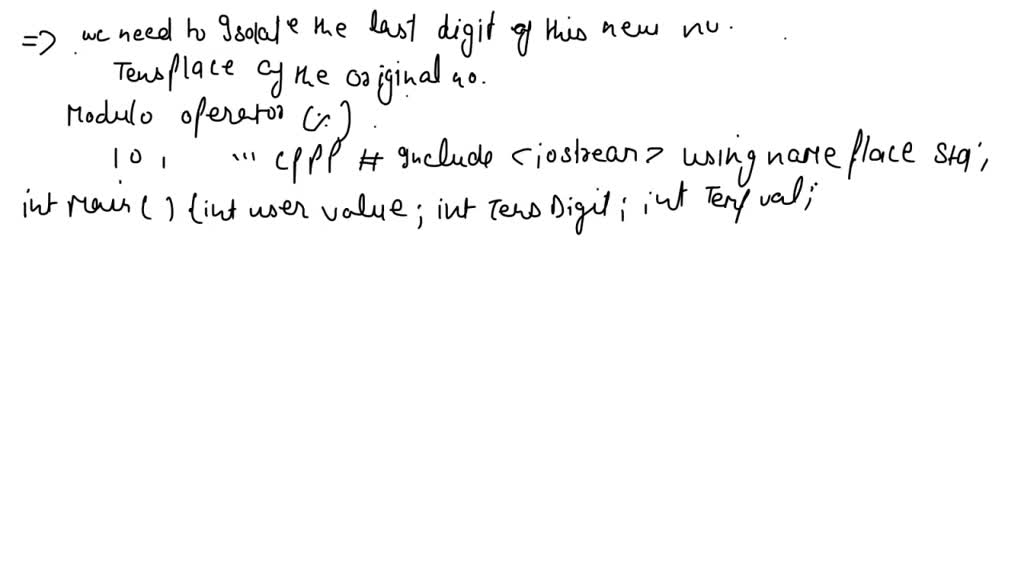 => we need to Isolate the last digit of this new no.
Tens place of the original no.
Modulo operator (%)
10, ... cppp # Include <iostream> using name place std;
int main() {int user value; int Tens Digit; int Temp val;